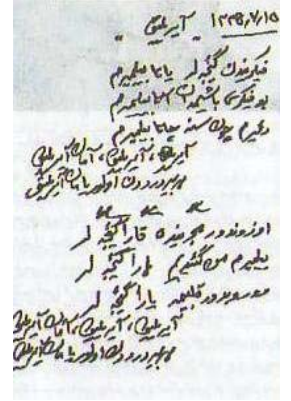 ۱۳۳۵,۷,۱۵ " آیریلیق "
فیکریندن گئجه لر یاتا بیلمیرم
بو فیکری باشیمدان آتا بیلمیرم
دئییرم چون سنه چاتا بیلمیرم
آیریلیق، آیریلیق، آمان آیریلیق
هر بیر درددن اولور یامان آیریلیق
اوزوندور هجرینده قارا گئجه لر
بیلمیرم من گئدیم هارا گئجه لر
ووروبدور قلبیمه یارا گئجه لر
آیریلیق، آیریلیق، آمان آیریلیق
هر بیر درددن اولور یامان آیریلیق